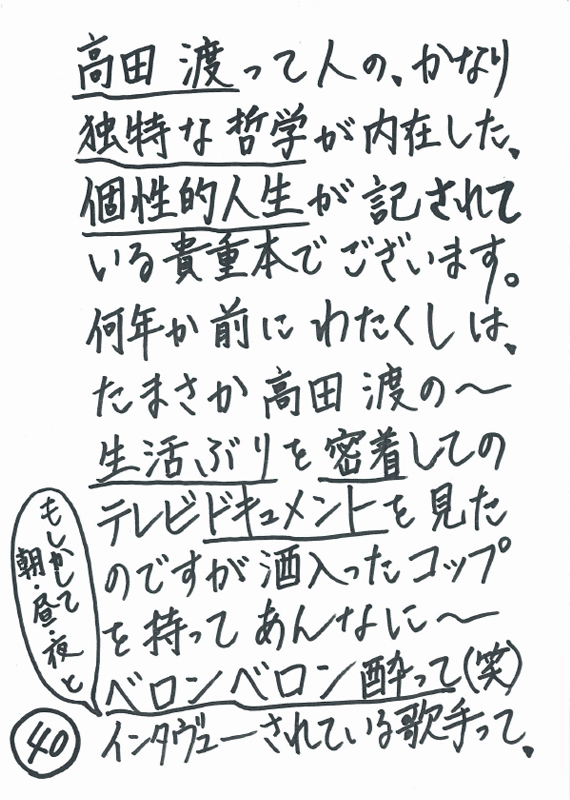 高田 渡って人の、かなり
独特な哲学が内在した、
個性的人生が記されて
いる貴重本でございます。
何年か前にわたくしは、
たまさか高田 渡の〜
生活ぶりを密着しての
テレビドキュメントを見た
のですが酒入ったコップ
を持ってあんなに〜
ベロンベロン酔って(笑)
インタヴューされている歌手って、
もしかして
朝・昼・夜と
40